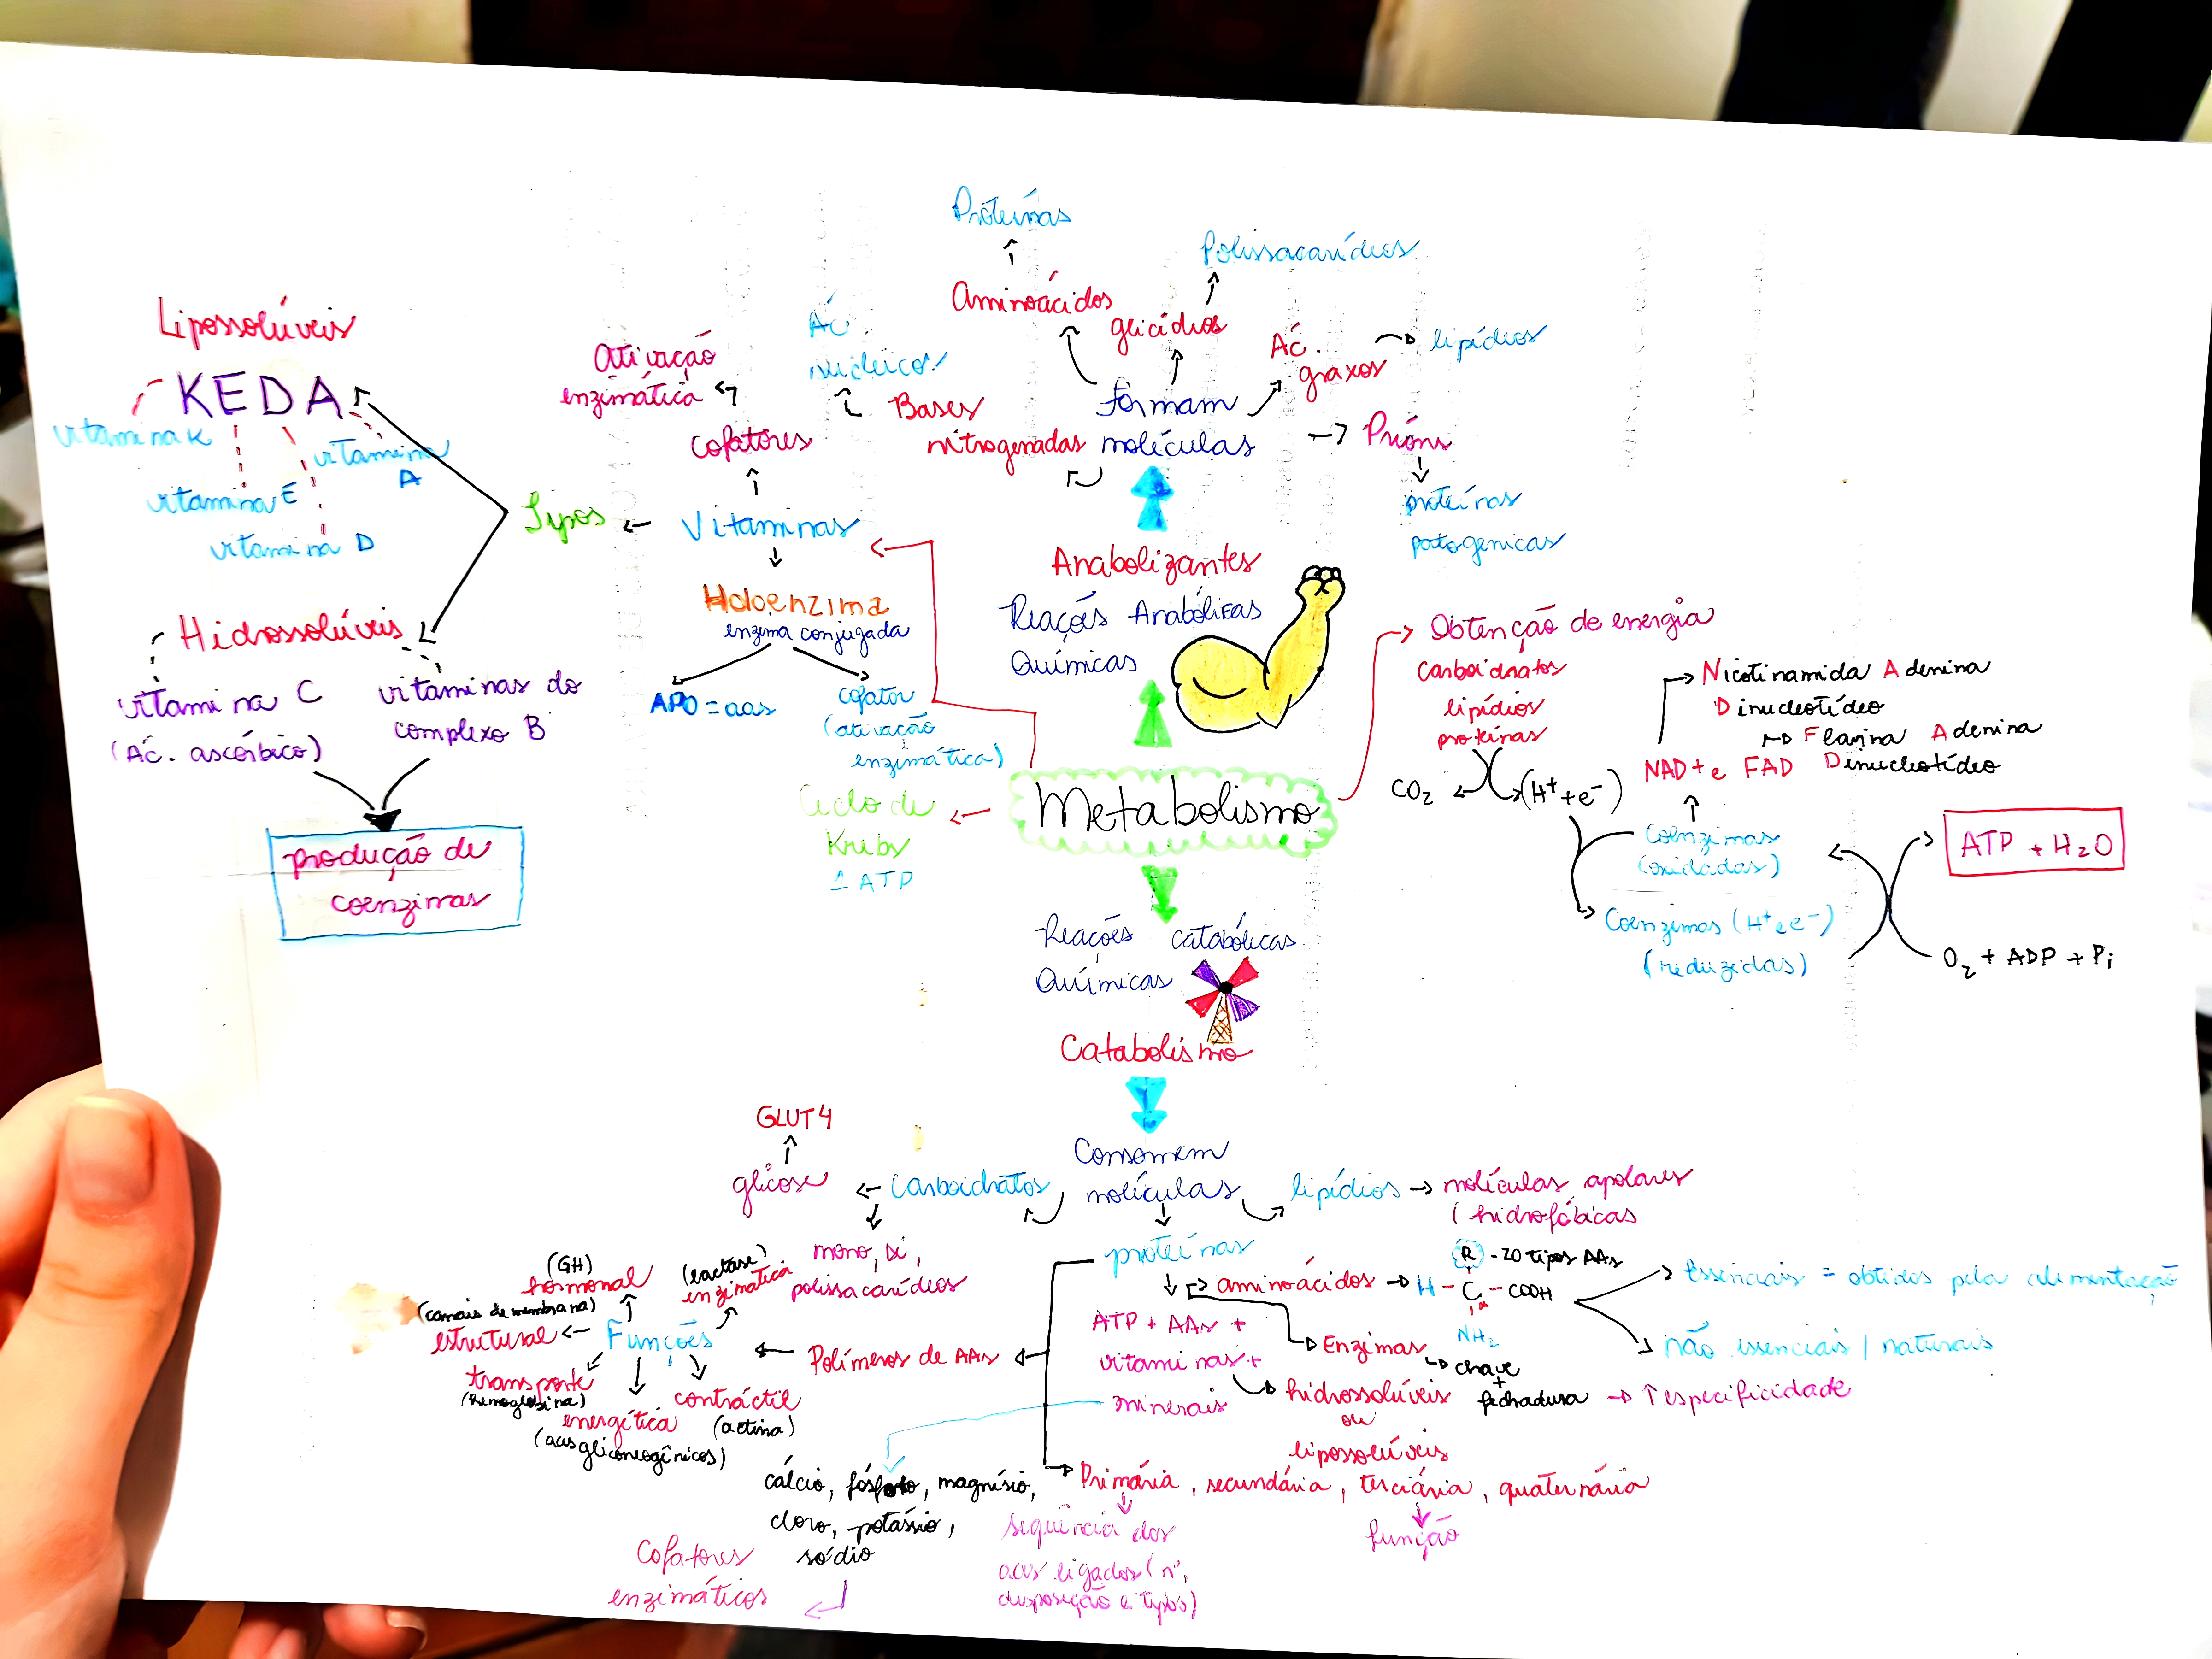 Proteínas
Polissacarídeos
Aminoácidos
glicídios
Ác.
graxos
lipídios
Formam
moléculas
Príons
proteínas
patogenicas
Bases
nitrogenadas
Ác.
nucleicos
Ativação
enzimática
Cofatores
Vitaminas
Tipos
Lipossolúveis
KEDA
vitamina K
vitamina E
vitamina D
vitamina
A
Hidrossolúveis
vitamina C
(Ác. ascórbico)
vitaminas do
complexo B
produção de
coenzimas
Holoenzima
enzima conjugada
APO = aas
cofator
(ativação
enzimática)
Anabolizantes
Reações Anabólicas
Químicas
Metabolismo
Ciclo de
Krebs
1 ATP
Obtenção de energia
carboidratos
lipídios
proteínas
CO2
(H+ + e-)
Nicotinamida Adenina
Dinucleotídeo
Flavina Adenina
Dinucleotídeo
NAD+ e FAD
Coenzimas
(oxidadas)
Coenzimas (H+ e e-)
(reduzidas)
ATP + H2O
O2 + ADP + Pi
Reações Catabólicas
Químicas
Catabolismo
Consomem
moléculas
Carboidratos
glicose
GLUT4
mono, di,
polissacarídeos
lipídios
moléculas apolares
( hidrofóbicas
proteínas
aminoácidos
R - 20 tipos AAs
H - C - COOH
NH2
Essenciais = obtidos pela alimentação
não essenciais / naturais
ATP + AAs +
vitaminas +
minerais
Enzimas
chave
+
fechadura
↑ especificidade
hidrossolúveis
ou
lipossolúveis
Polímeros de AAs
Funções
(GH)
hormonal
(lactase)
enzimática
(canais de membrana)
estrutural
transporte
(hemoglobina)
energética
(aas gliconeogênicos)
contráctil
(actina)
cálcio, fósforo, magnésio,
cloro, potássio,
sódio
Cofatores
enzimáticos
Primária, secundária, terciária, quaternária
sequência dos
aas ligados (nº,
disposição e tipos)
função